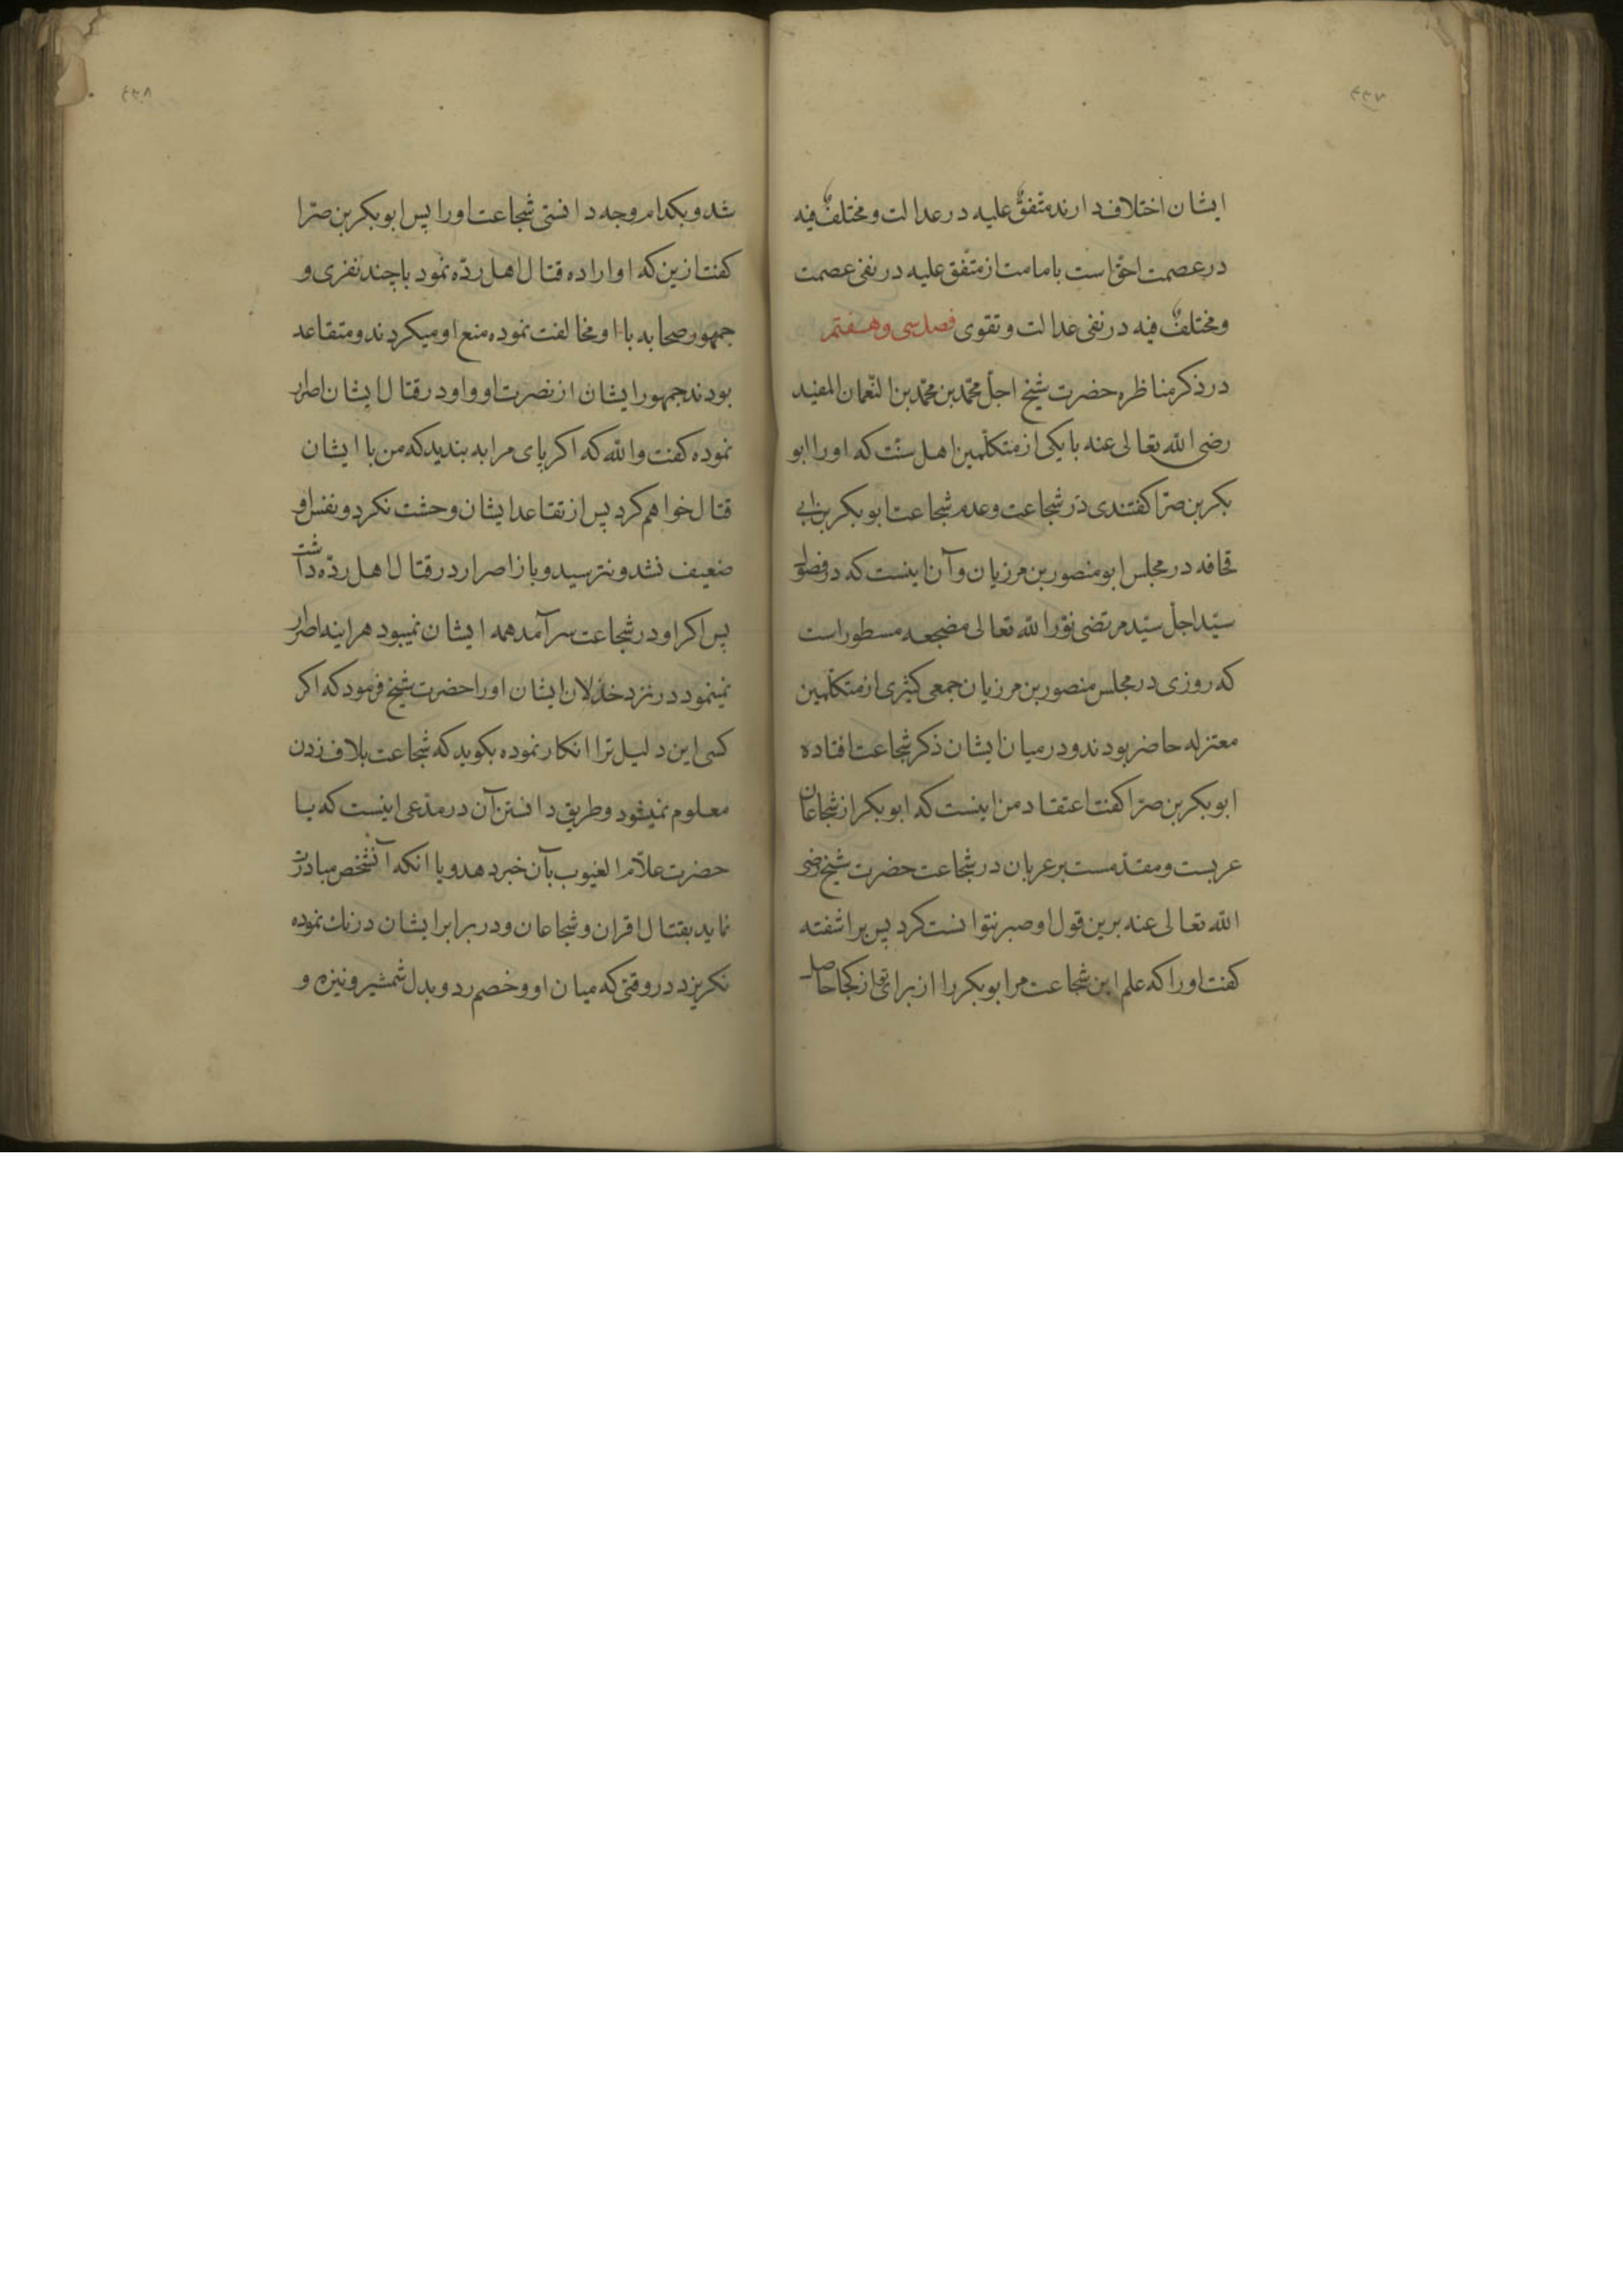 ۴۳۷
ایشان اختلاف دارند متفقٌ علیه در عدالت و مختلفٌ فیه
در عصمت احق است بامامت از متفق علیه در نفی عصمت
و مختلفٌ فیه در نفی عدالت و تقوی فصل سی و هفتم
در ذکر مناظره حضرت شیخ اجلّ محمّد بن محمّد بن النّعمان المفید
رضی الله تعالی عنه با یکی از متکلّمین اهل سنّت که او را ابو
بکر بن صرّا کفتندی در شجاعت و عدم شجاعت ابو بکر بن ابی
قحافه در مجلس ابو منصور بن مرزبان و آن اینست که در فصول
سیّد اجلّ سیّد مرتضی نوّر الله تعالی مضجعه مسطور است
که روزی در مجلس منصور بن مرزبان جمعی کثیری از متکلّمین
معتزله حاضر بودند و در میان ایشان ذکر شجاعت افتاده
ابو بکر بن صرّا کفت اعتقاد من اینست که ابو بکر از شجاعان
عربست و مقدّمست بر عربان در شجاعت حضرت شیخ رضی
الله تعالی عنه برین قول او صبر نتوانست کرد پس براشفته
کفت او را که علم این شجاعت مر ابو بکر را از برای تو از کجا حاصل
۴۳۸
شد و بکدام وجه دانستی شجاعت او را پس ابو بکر بن صرّا
کفت ازین که او اراده قتال اهل ردّه نمود با چند نفری و
جمهور صحابه با او مخالفت نموده منع او میکردند و متقاعد
بودند جمهور ایشان از نصرت او و او در قتال ایشان اصرار
نموده کفت والله که اکر پای مرا به بندید که من با ایشان
قتال خواهم کرد پس از تقاعد ایشان وحشت نکرد و نفس او
ضعیف نشد و نترسید و باز اصرار در قتال اهل ردّه داشت
پس اکر او در شجاعت سر آمد همه ایشان نمیبود هراینه اصرار
نمینمود در نزد خذلان ایشان او را حضرت شیخ فرمود که اکر
کسی این دلیل ترا انکار نموده بکوید که شجاعت بلاف زدن
معلوم نمیشود و طریق دانستن آن در مدّعی اینست که یا
حضرت علاّم الغیوب بآن خبر دهد و یا انکه آنشخص مبادرت
نماید بقتال اقران و شجاعان و در برابر ایشان درنك نموده
نکریزد در وقتی که میان او و خصم رد و بدل شمشیر و نیزه و